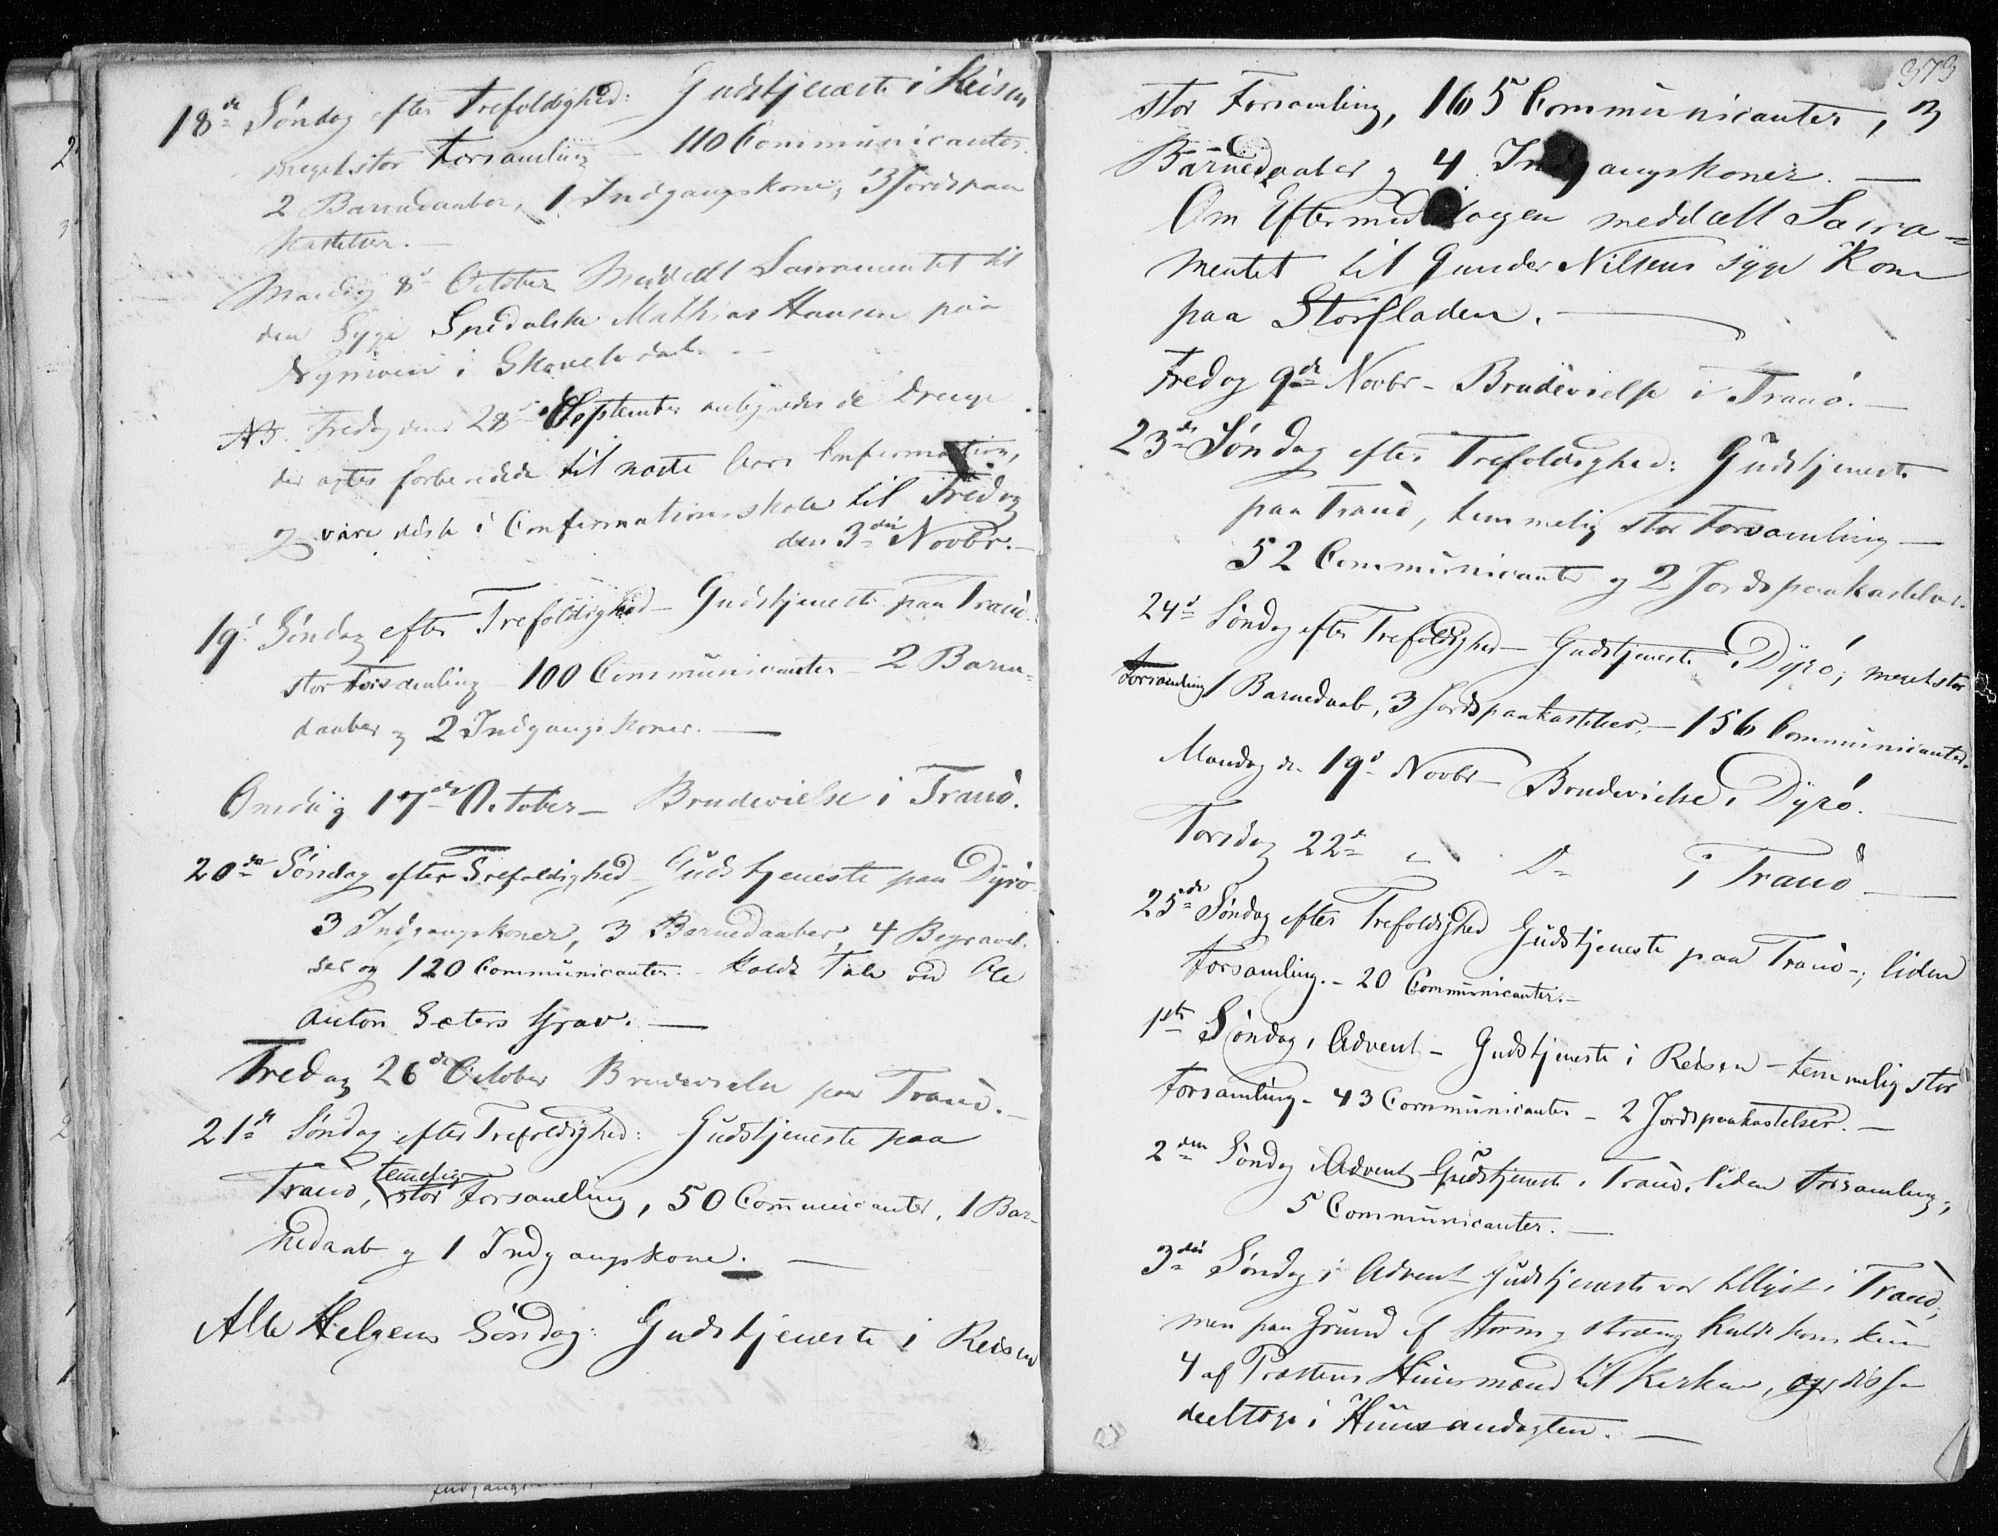 18de Søndag efter Trefoldighed: Gudstjeneste i Reisen
meget stor Forsamling – 110 Communicanter.
2 Barnedaaber, 1 Indgangskone, 3 Jordspaa
kastelser. –
Mandag 8d October Meddelt Sacramentet til
den Syge Spedalske Mathias Hansen paa
Nymoen i
NB. Fredag den 28d September de Drenge
der agtes forberedede til næste Aars Confirmation,
og vare disse i Confirmationsskole til Fredag
den 3die Novbr. –
19d Søndag efter Trefoldighed – Gudstjeneste paa Tranø.
stor Forsamling – 100 Communicanter – 2 Barne-
daaber og 2 Indgangskoner. –
Onsdag 17de October – Brudevielse i Tranø.
20de Søndag efter Trefoldighed – Gudstjeneste paa Dyrø
3 Indgangskoner, 3 Barnedaaber, 4 Begravel-
ser og 120 Communicanter. – Holdt Tale ved Ole
Anton Sæters Grav. –
Fredag 26de October Brudevielse paa Tranø. –
21de Søndag efter Trefoldighed: Gudstjeneste paa
temelig
Tranø, stor Forsamling, 50 Communicanter, 1 Bar-
nedaab og 1 Indgangskone. –
Alle Helgens Søndag: Gudstjeneste i Reisen
373
stor Forsamling, 165 Communicanter, 3
Barnedaaber og 4 Indgangskoner. –
Om Eftermiddagen meddelt Sacra=
mentet til Gunder Nilsens syge Kone
paa Storfladen. –
Fredag 9de Novbr – Brudevielse i Tranø. –
23de Søndag efter Trefoldighed: Gudstjeneste
paa Tranø, temmelig stor Forsamling –
52 Communicanter og 2 Jordspaakastelser.
24d Søndag efter Trefoldighed – Gudstjeneste i Dyrø, meget stor
Forsamling 1 Barnedaab, 3 Jordspaakastelser, – 156 Communicanter.
Mandag d. 19d Novbr – Brudevielse i Dyrø. –
Torsdag 22de " D= i Tranø –
25de Søndag efter Trefoldighed Gudstjeneste paa Tranø –, liden
Forsamling. – 20 Communicanter. –
1ste Søndag i Advent – Gudstjeneste i Reisen – temmelig stor
Forsamling – 43 Communicanter – 2 Jordspaakastelser. –
2den Søndag i Advent Gudstjeneste i Tranø, liden Forsamling,
5 Communicanter. –
3die Søndag i Advent Gudstjeneste var tillyst i Tranø,
men paa Grund af Storm og stræng Kulde kom kun
4 af Præstens Huusmænd til Kirken, og disse
deeltoge i Huusandagten. –